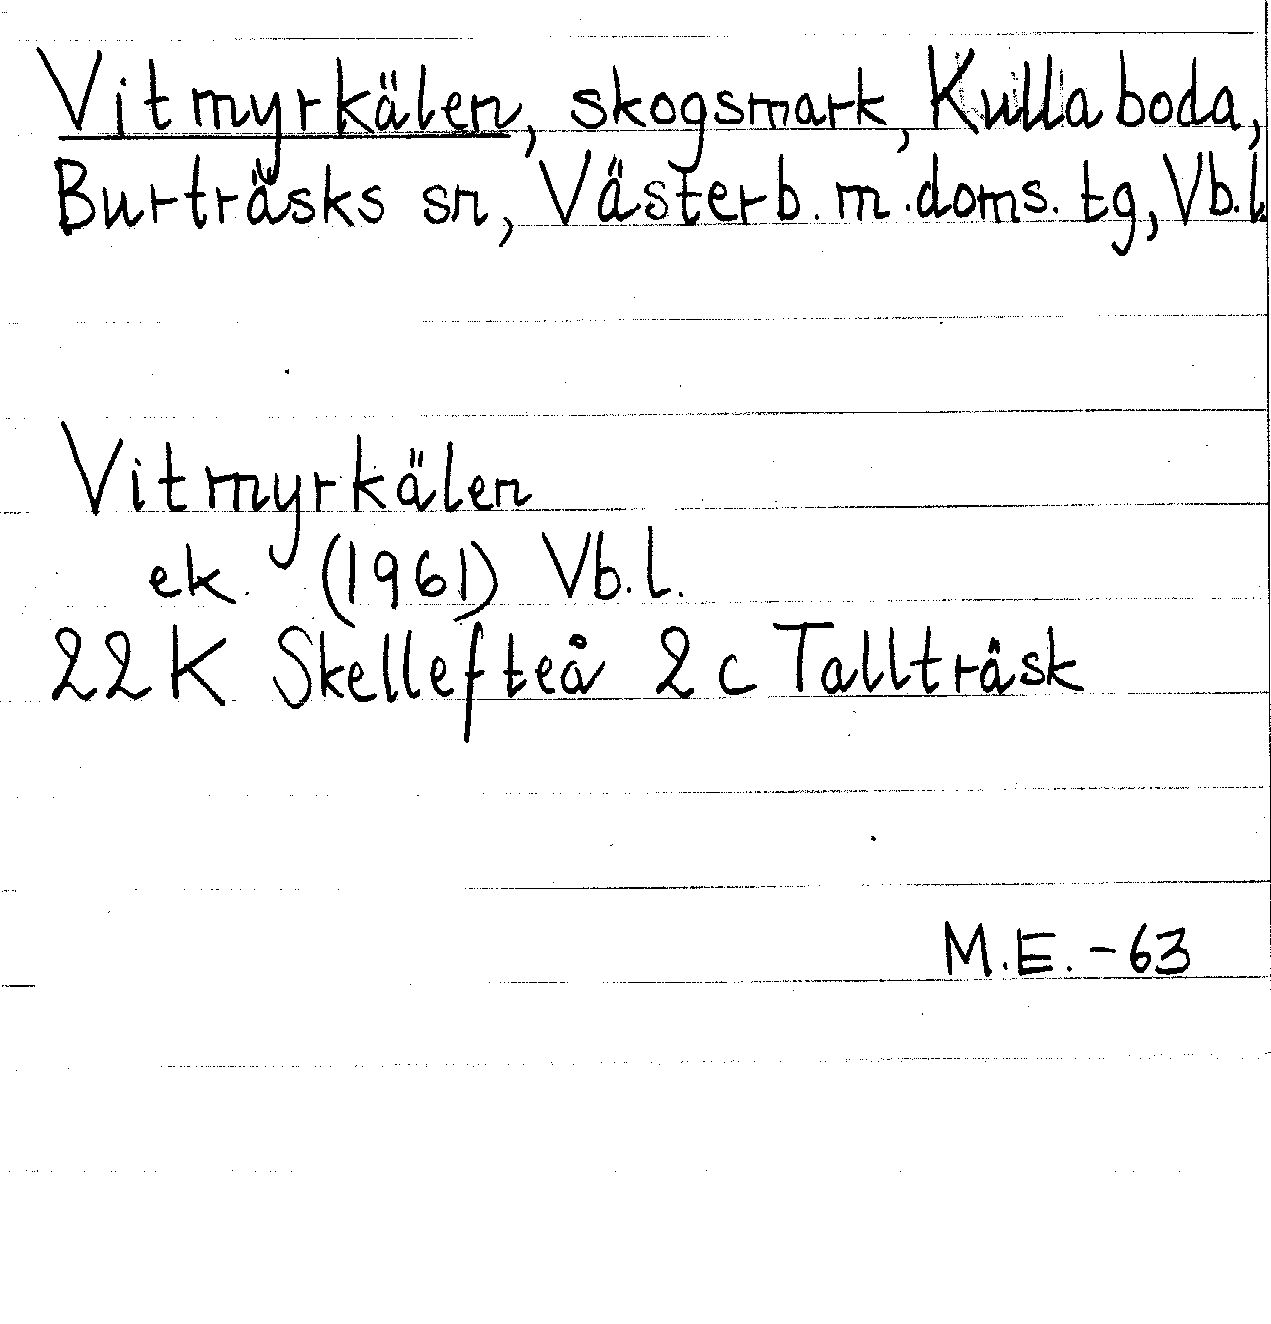 Vitmyrkälen, skogsmark, Kullaboda,
Burträsks sn, Västerb. m. doms. tg, Vb.l.
Vitmyrkälen
ek. (1961) Vb.l.
22K Skellefteå 2c Tallträsk
M.E. -63